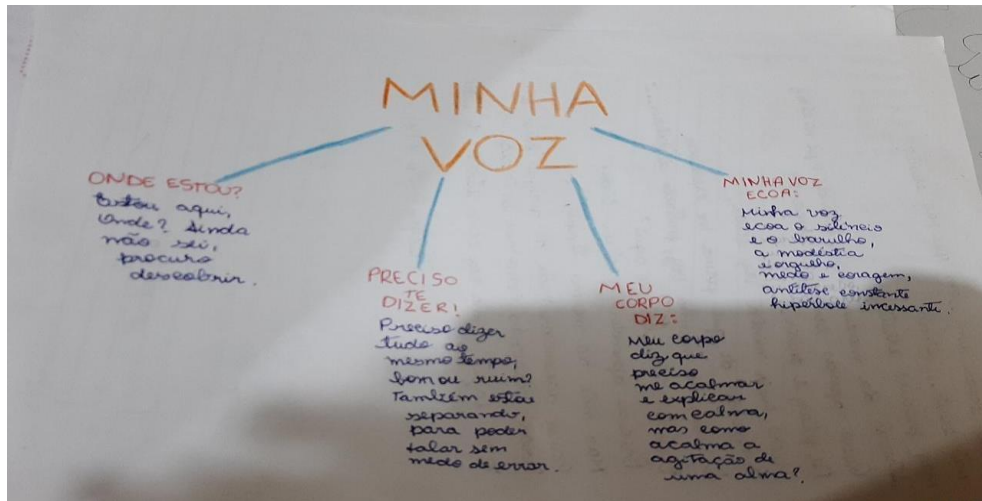 MINHA
VOZ
ONDE ESTOU?
Estou aqui,
Onde? Ainda
não sei,
procuro
descobrir.
PRECISO
TE
DIZER!
Preciso dizer
tudo ao
mesmo tempo,
bom ou ruim?
Também estou
separando,
para poder
falar sem
medo de errar.
MEU
CORPO
DIZ:
Meu corpo
diz que
preciso
me acalmar
e explicar
com calma,
mas como
acalma a
agitação de
uma alma?
MINHA VOZ
ECOA:
Minha voz
ecoa o silêncio
e o barulho,
a modéstia
e orgulho,
medo e coragem,
antítese constante
hipérbole incessante.